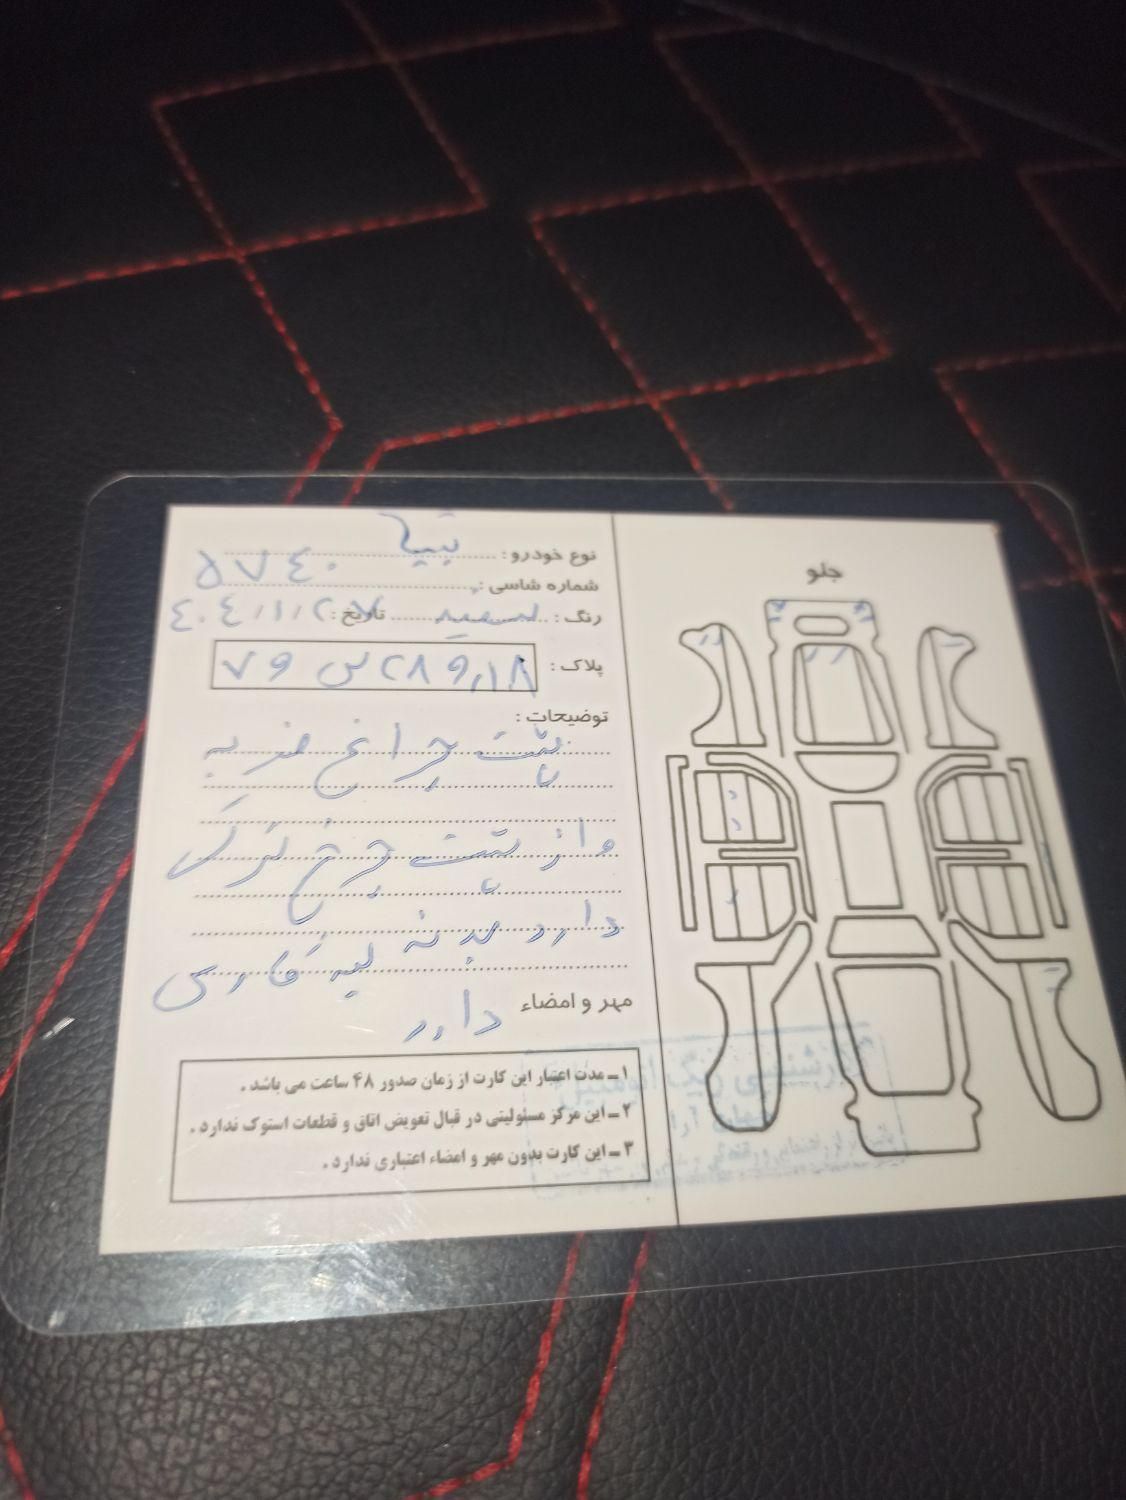 جلو
نوع خودرو : تیبا
شماره شاسی : ۵۷۴۰
رنگ : سفید تاریخ : ۴۰۴/۱/۲۷
پلاک :
توضیحات :
پشت چراغ ضربه
و از پشت چرخ ترک
دارد بدنه لیه گارسی
دارد
مهر و امضاء
۱ ــ مدت اعتبار این کارت از زمان صدور ۴۸ ساعت می باشد .
۲ ــ این مرکز مسئولیتی در قبال تعویض اتاق و قطعات استوک ندارد .
۳ ــ این کارت بدون مهر و امضاء اعتباری ندارد .
کارشناسی رنگ اتومبیل